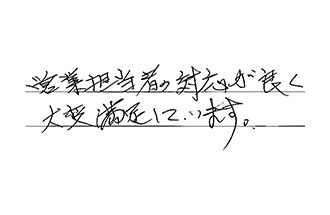 営業担当者の対応が良く
大変満足しています。